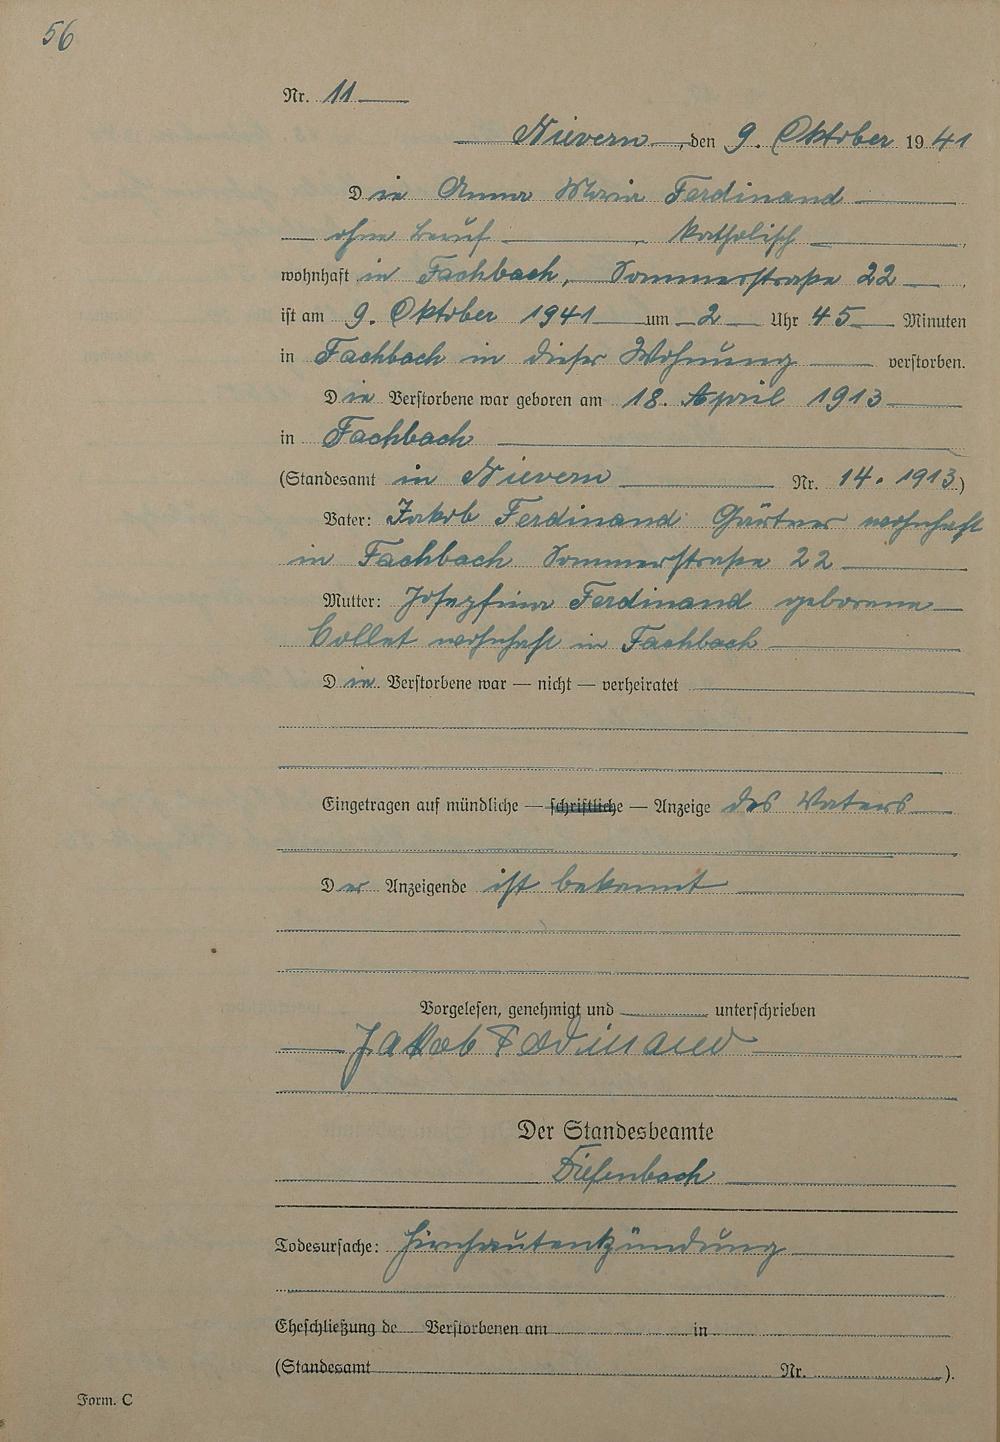 56
Nr. 11
Nievern, den 9. Oktober 1941
Die Anna Maria Ferdinand
ohne Beruf, katholisch,
wohnhaft in Fachbach, Sommerstraße 22,
ist am 9. Oktober 1941 um 2 Uhr 45 Minuten
in Fachbach in dieser Wohnung verstorben.
Die Verstorbene war geboren am 18. April 1913
in Fachbach
(Standesamt in Nievern Nr. 14. 1913)
Vater: Jakob Ferdinand Gärtner wohnhaft
in Fachbach Sommerstraße 22
Mutter: Josephina Ferdinand geborene
Collet wohnhaft in Fachbach
Die Verstorbene war — nicht — verheiratet
Eingetragen auf mündliche — schriftliche — Anzeige des Vaters
Der Anzeigende ist bekannt
Vorgelesen, genehmigt und unterschrieben
Jakob Ferdinand
Der Standesbeamte
Diefenbach
Todesursache: Hirnhautentzündung
Eheschließung de Verstorbenen am in
(Standesamt Nr. ).
Form. C